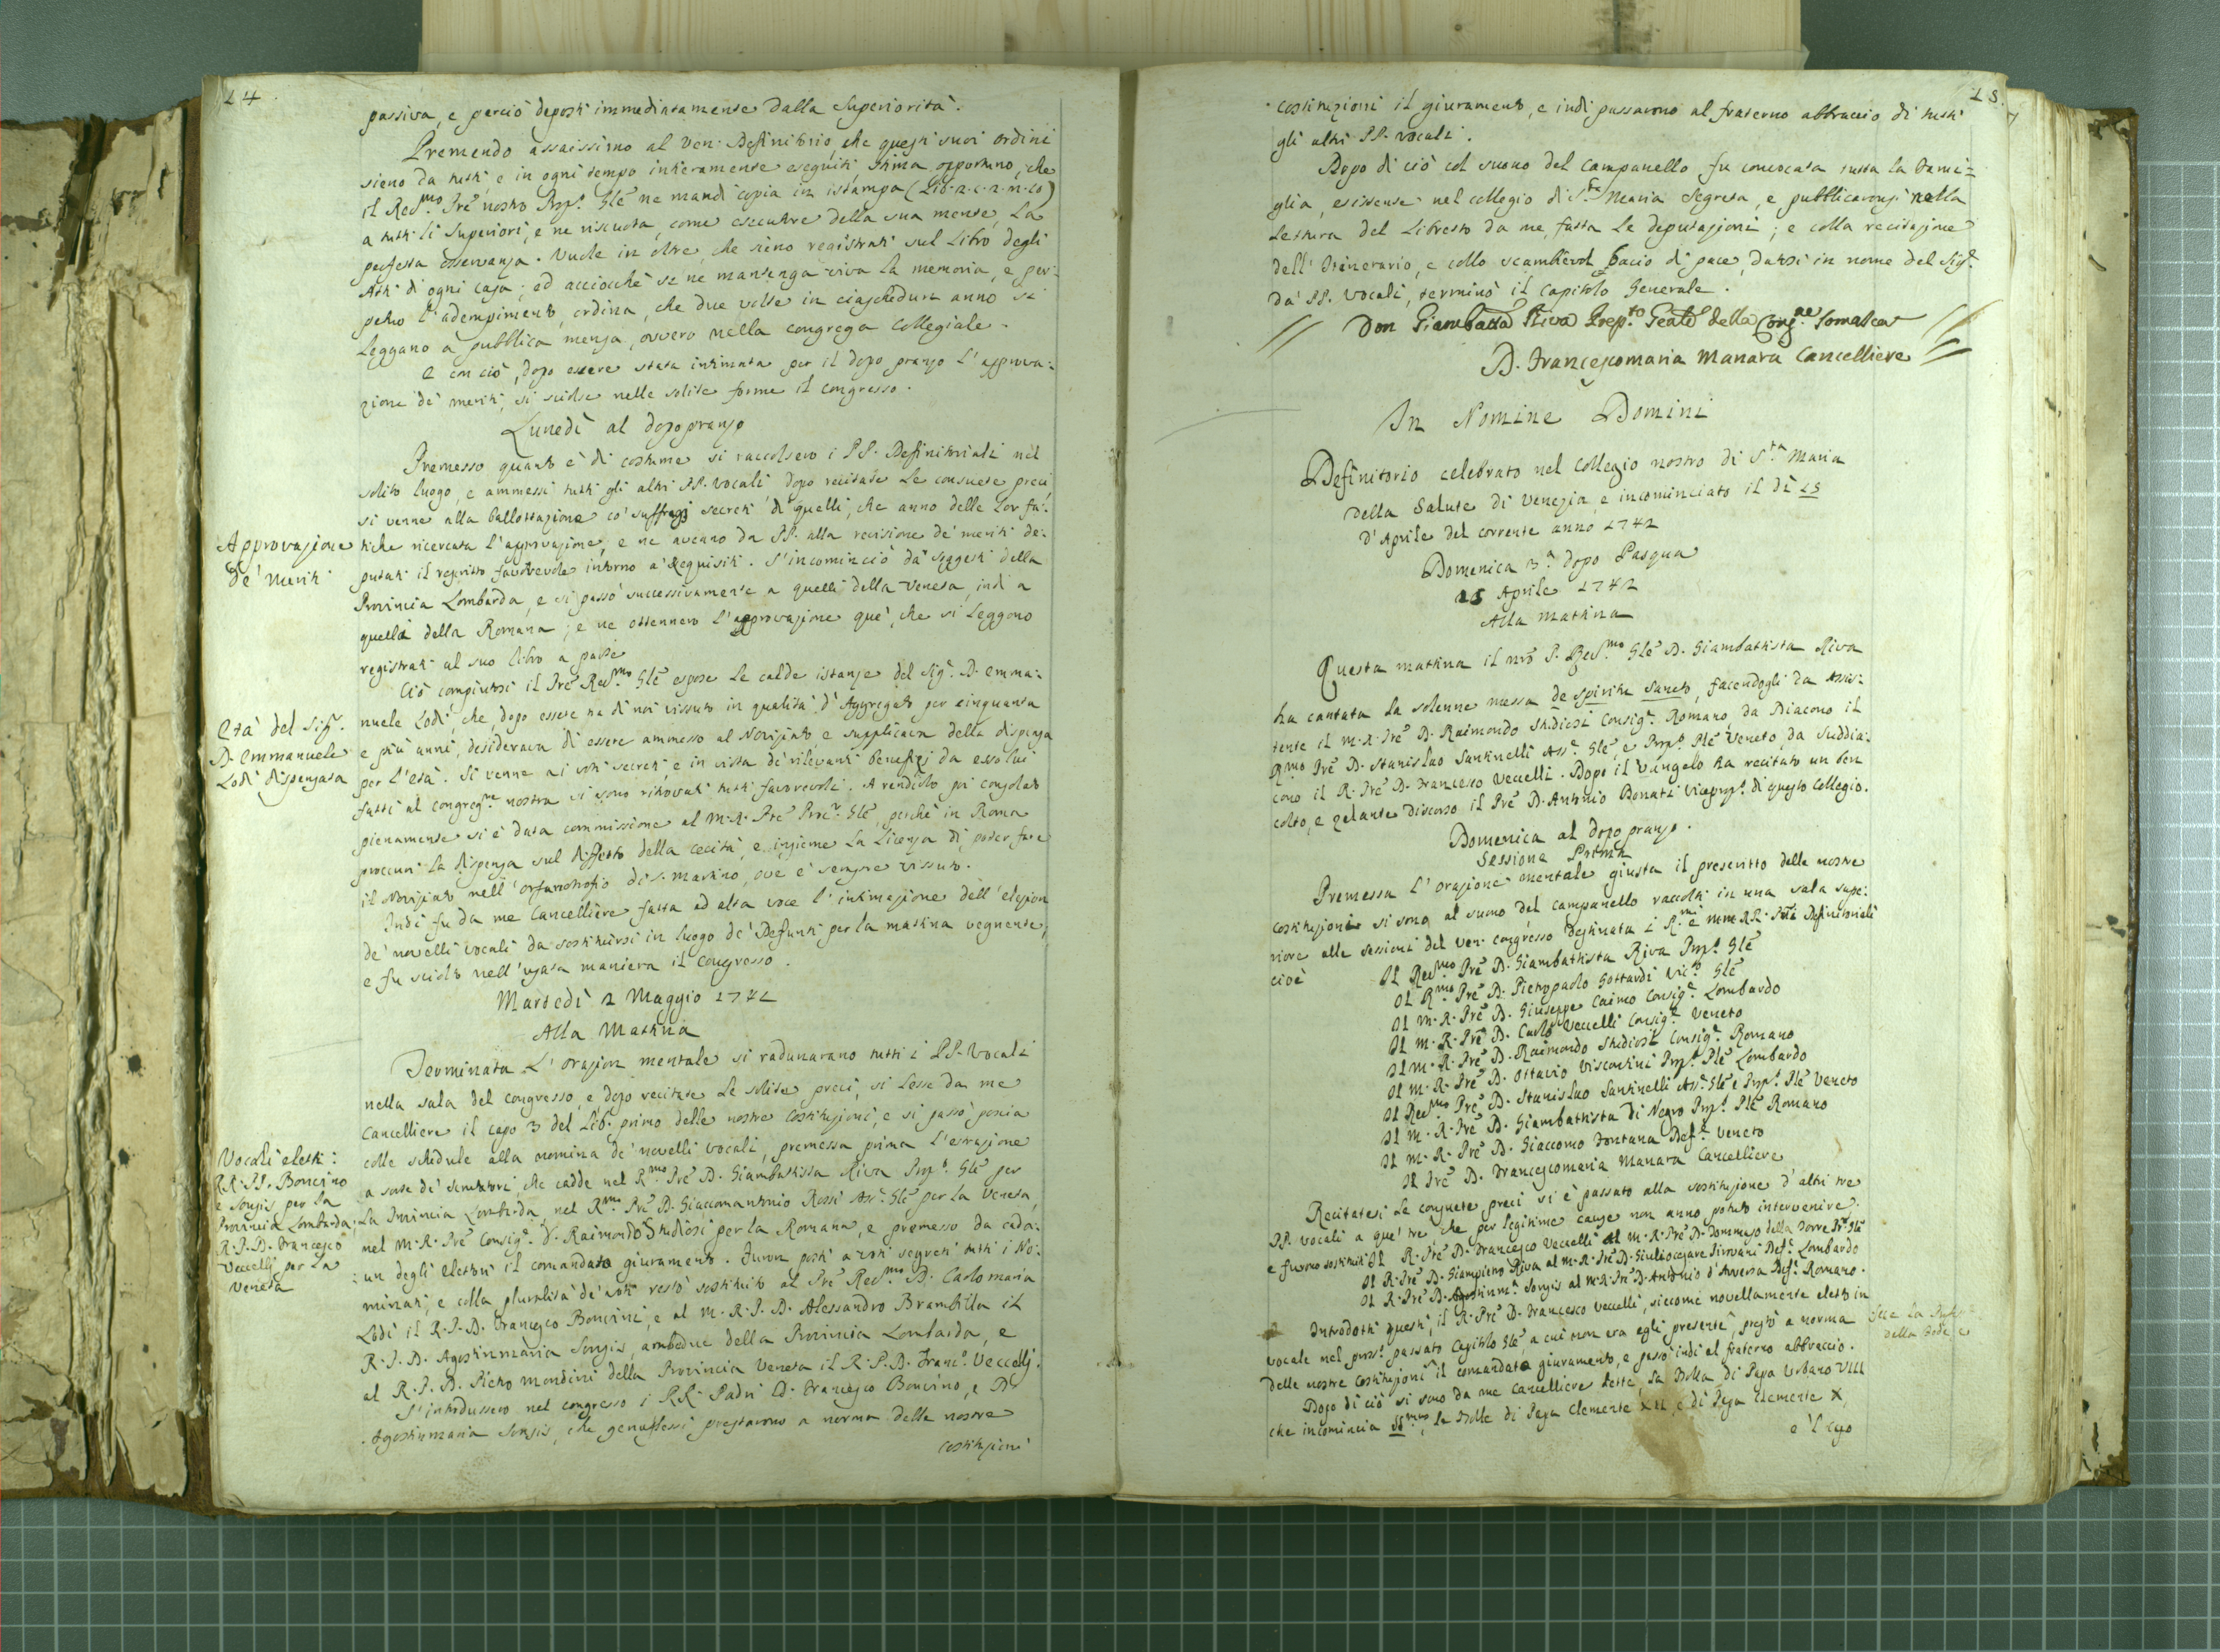 14
passiva, e perciò deposti immediatamente dalla Superiorità.
Premendo assaissimo al Ven. Definitorio, che questi suoi ordini
sieno da tutti, e in ogni tempo intieramente eseguiti, stima opportuno, che
il Revmo Pre nostro Prep. Gle ne mandi copia in istampa (Lib. 2. c. 2. n. 10)
a tutti li Superiori, e ne riscuota, come esecutore della sua mente, la
perfetta osservanza. Vuole in oltre, che sieno registrati sul Libro degli
Atti di ogni Casa; ed acciocchè se ne mantenga viva la memoria, e per-
petuo l'adempimento, ordina, che due volte in ciaschedun anno si
leggano a pubblica mensa, ovvero nella congrega collegiale.
E con ciò, dopo essere stata intimata per il dopo pranzo l'approva:
zione de' meriti, si sciolse nelle solite forme il congresso.
Lunedì al dopopranzo
Premesso quanto è di costume si raccolsero i PP. Definitoriali nel
solito luogo, e ammessi tutti gli altri PP. Vocali, dopo recitate le consuete preci,
si venne alla ballottazione co' suffragj secreti di quelli, che anno delle lor fa:
Approvazione
de' Meriti
tiche ricercata l'approvazione, e ne aveano da PP. alla revisione de' meriti de:
putati il rescritto favorevole intorno a' Requisiti. S'incominciò da' Soggetti della
Provincia Lombarda, e si passò successivamente a quelli della Veneta, indi a
quelli della Romana; e ne ottennero l'approvazione que', che si leggono
registrati al suo libro a parte
Ciò compiutosi il Pre Revmo Gle espose le calde istanze del Sig. D. Emma:
Età del Sigr.
D. Emmanuele
Lodi dispensata
nuele Lodi, che, dopo essere tra di noi vissuto in qualità d'Aggregato per cinquanta
e più anni, desiderava di essere ammesso al Noviziato, e supplicava della dispensa
per l'età. Si venne ai voti secreti, e in vista de' rilevanti benefizj da esso lui
fatti al Congregne nostra si sono ritrovati tutti favorevoli. A renderlo poi consolato
pienamente si è data commissione al M. R. Pre Procr. Gle, perchè in Roma
procuri la dispensa sul diffetto della cecità, e insieme la licenza di poter fare
il Noviziato nell'orfanotrofio di S. Martino, ove è sempre vissuto.
Indi fu da me Cancelliere fatta ad alta voce l'intimazione dell'elezion
de' novelli Vocali da sostituirsi in luogo de' Defunti per la mattina vegnente,
e fu sciolto nell'usata maniera il Congresso.
Martedì 2 Maggio 1741
Alla Mattina
Terminata l'orazion mentale si radunarano tutti i PP. Vocali
nella sala del congresso, e dopo recitate le solite preci, si lesse da me
Cancelliere il capo 3 del Lib. primo delle nostre Costituzioni, e si passò poscia
colle schedule alla nomina de' novelli Vocali, premessa prima l'estrazione
Vocali eletti:
RR. PP. Boncino
e Songis per la
Provincia Lombarda;
R. P. D. Francesco
Veccelli per la
Veneta
a sorte de' Scrutatori, che cadde nel Rmo Pre D. Giambattista Riva Prep. Gle per
la Provincia Lombarda, nel Rmo Pre D. Giaccomantonio Rossi Ass. Gle per la Veneta,
nel M. R. Pre Consigr. D. Raimondo Studiosi per la Romana, e premesso da cada:
un degli elettori il comandato giuramento. Furon posti a voti segreti tutti i No:
minati, e colla pluralità de' voti restò sostituito al Pre Revmo D. Carlo maria
Lodi il R. P. D. Francesco Boncini, e al M. R. P. D. Alessandro Brambilla il
R. P. D. Agostinmaria Songis, ambedue della Provincia Lombarda, e
al R. P. D. Pietro Mondini della Provincia Veneta il R. P. D. Franc. Veccelli.
S'introdussero nel congresso i RR. Padri D. Francesco Boncino, e D.
Agostinmaria Songis, che genuflessi prestarono a norma delle nostre
costituzioni
15.
costituzioni il giuramento, e indi passarono al fraterno abbraccio di tutti
gli altri PP. Vocali.
Dopo di ciò col suono del campanello fu convocata tutta la Fami=
glia, esistente nel collegio di Sta Maria Segreta, e pubblicaronsi nella
lettura del Libretto da me fatta le deputazioni; e colla recitazione
dell'Itinerario, e collo scambievol bacio di pace, datosi in nome del Sigr.
da' PP. Vocali, terminò il Capitolo Generale.
Don Giambatta Riva Prepto Genle della Congne Somasca
D. Francescomaria Manara Cancelliere
In Nomine Domini
Definitorio celebrato nel Collegio nostro di Sta Maria
della Salute di Venezia, e incominciato il dì 15
d'Aprile del corrente anno 1742
Domenica 3a dopo Pasqua
15 Aprile 1742
Alla mattina
Questa mattina il nro P. Revmo Gle D. Giambattista Riva
ha cantata la solenne messa de Spiritu Sancto, facendogli da Assis:
tente il M. R. Pre D. Raimondo Studiosi Consigr. Romano, da Diacono il
Rmo Pre D. Stanislao Santinelli Ass. Gle, e Prep. Ple Veneto, da Suddia:
cono il R. Pre D. Francesco Veccelli. Dopo il Vangelo ha recitato un ben
colto, e zelante discorso il Pre D. Antonio Bonati Viceprep. di questo Collegio.
Domenica al dopo pranzo.
Sessione Prima
Premessa l'orazione mentale giusta il prescritto delle nostre
costituzioni si sono al suono del campanello raccolti in una sala supe:
riore alle sessioni del Ven. Congresso destinata i R.mi e MM RR. PPri Definitoriali
cioè Il Revmo Pre D. Giambattista Riva Prep. Gle
Il Rmo Pre D. Pietropaolo Gottardi Vic. Gle
Il M. R. Pre D. Giuseppe Caimo Consigr. Lombardo
Il M. R. Pre D. Carlo Veccelli Consigr. Veneto
Il M. R. Pre D. Raimondo Studiosi Consigr. Romano
Il M. R. Pre D. Ottavio Viscontini Prep. Ple Lombardo
Il Revmo Pre D. Stanislao Santinelli Ass. Gle e Prep. Ple Veneto
Il M. R. Pre D. Giambattista di Negro Prep. Ple Romano
Il M. R. Pre D. Giaccomo Fontana Defr. Veneto
Il Pre D. Francescomaria Manara Cancelliere
Recitatesi le consuete preci si è passato alla sostituzione d'altri tre
PP. Vocali a que' tre, che per legitime cause non anno potuto intervenire;
e furono sostituiti Il R. Pre D. Francesco Veccelli al M. R. Pre D. Tommaso della Torre Gle
Il R. Pre D. Giampietro Riva al M. R. Pre D. Giuliocesare Sirovani Defr. Lombardo
Il R. Pre D. Agostinma. Songis al M. R. Pre D. Antonio d'Aversa Defr. Romano.
Introdotti questi, il R. Pre D. Francesco Veccelli, siccome novellamente eletto in
vocale nel pross. passato Capitolo Gle, a cui non era egli presente, prestò a norma
delle nostre Costituzioni il comandato giuramento, e passò indi al fraterno abbraccio.
della fede, e
Dopo di ciò si sono da me Cancelliere lette, la Bolla di Papa Urbano VIII
che incomincia SSmus, le Bolle di Papa Clemente XII, e di Papa Clemente X,
e 'l capo